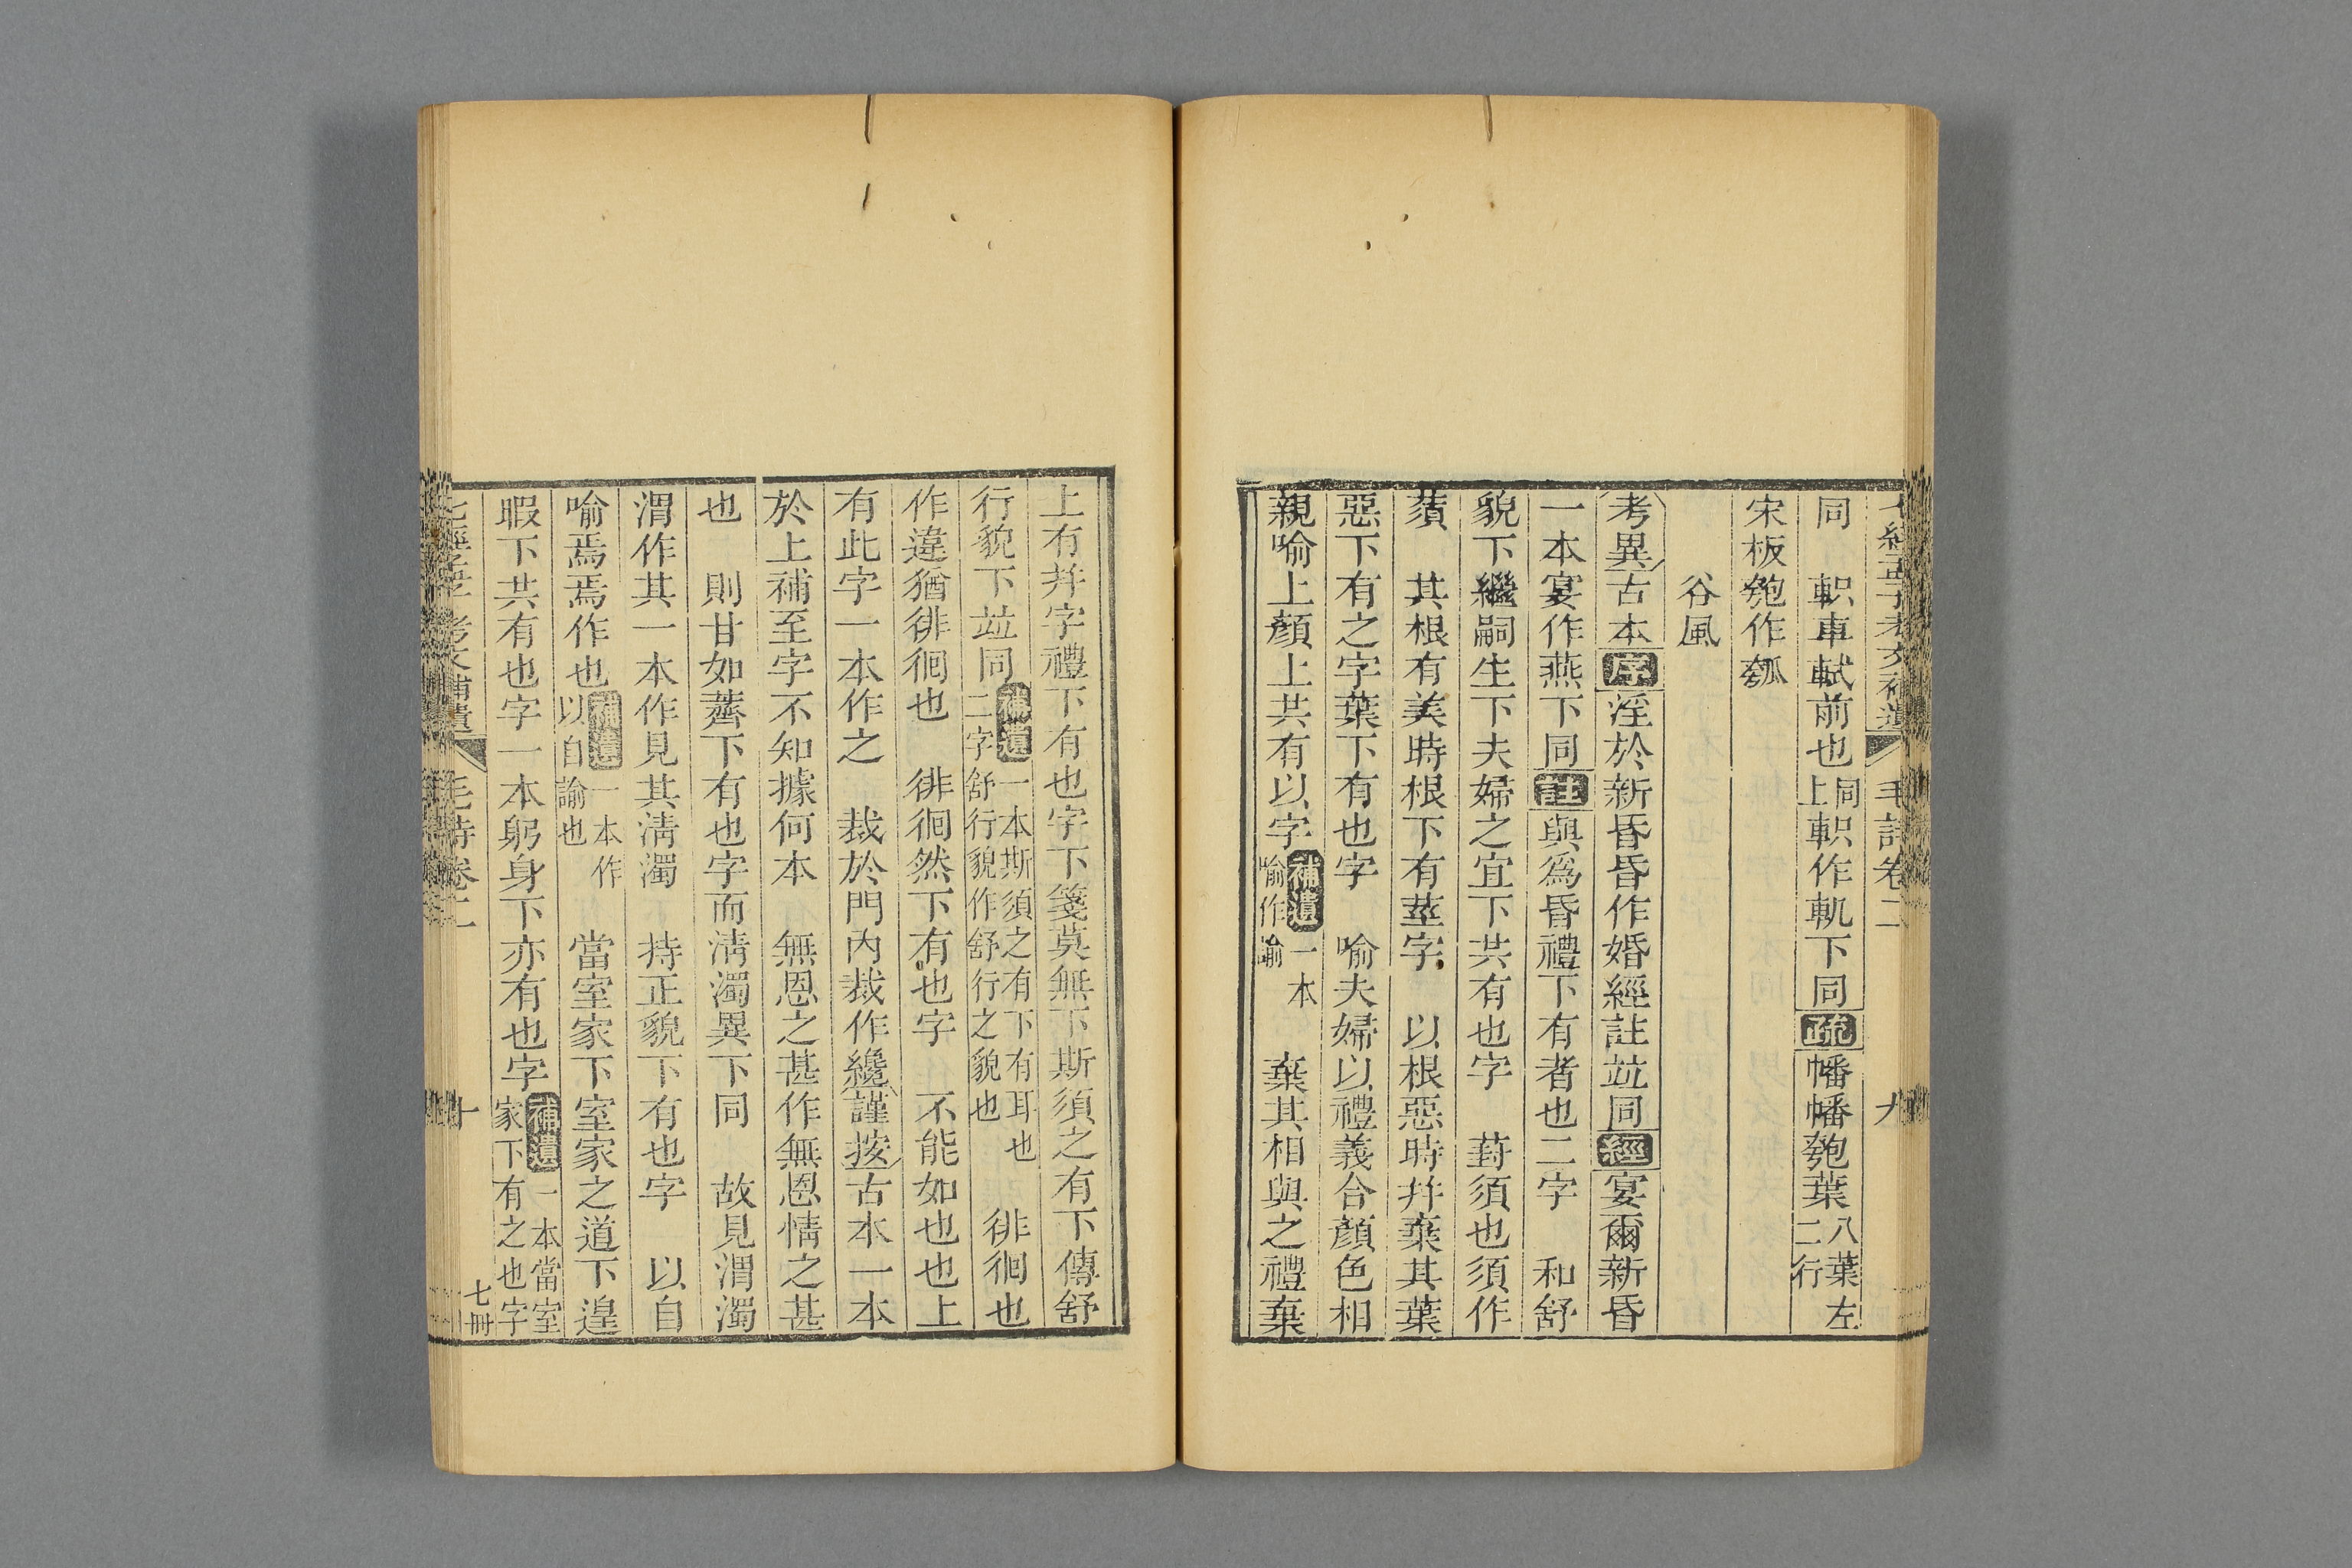 七經孟子考文補遺 毛詩卷二 九
同 軹車軾前也同上軹作軌下同疏幡幡匏葉八葉左二行
宋板匏作瓠
谷風
考異古本序淫於新昏昏作婚經註竝同經宴爾新昏
一本宴作燕下同註與爲昏禮下有者也二字 和舒
貌下繼嗣生下夫婦之宜下共有也字 葑須也須作
蕦 其根有美時根下有莖字 以根惡時幷棄其葉
惡下有之字葉下有也字 喻夫婦以禮義合顏色相
親喻上顏上共有以字補遺一本喻作諭 棄其相與之禮棄
上有幷字禮下有也字下箋莫無下斯須之有下傳舒
行貌下竝同補遺一本斯須之有下有耳也二字舒行貌作舒行之貌也 徘徊也
作違猶徘徊也 徘徊然下有也字 不能如也也上
有此字一本作之 裁於門內裁作纔謹按古本一本
於上補至字不知據何本 無恩之甚作無恩情之甚
也 則甘如薺下有也字而淸濁異下同 故見渭濁
渭作其一本作見其淸濁 持正貌下有也字 以自
喻焉焉作也補遺一本作以自諭也 當室家下室家之道下遑
暇下共有也字一本躬身下亦有也字補遺一本當室家下有之也字
七經孟子考文補遺 毛詩卷二 十 七冊